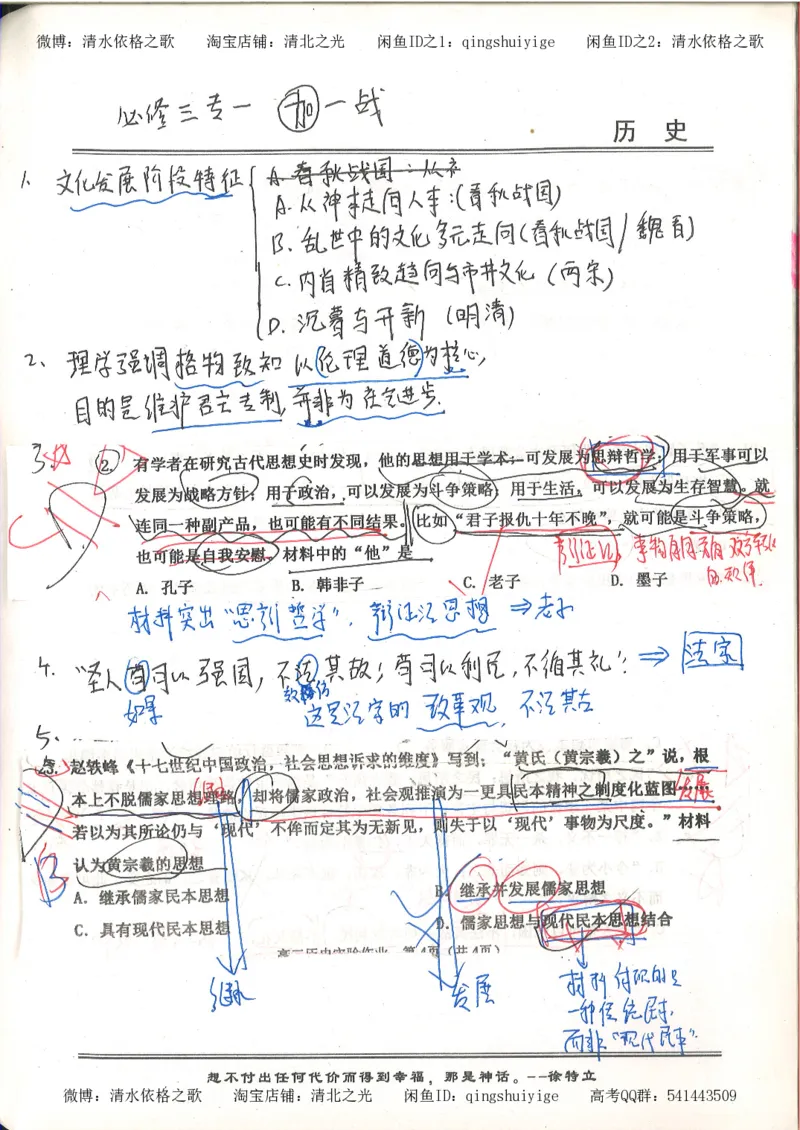 微博：清水依格之歌 淘宝店铺：清北之光 闲鱼ID之1：qingshuiyige 闲鱼ID之2：清水依格之歌
必修三专一 加一战
历 史
1. 文化发展阶段特征
A. 春秋战国：从神
A. 从神走向人事：(春秋战国)
B. 乱世中的文化多元走向(春秋战国/魏晋)
C. 内省精致趋向与市井文化 (两宋)
D. 沉暮与开新 (明清)
2、理学强调格物致知 以伦理道德为核心，
目的是维护君主专制，并非为 社会进步.
3.
2. 有学者在研究古代思想史时发现，他的思想用于学术；可发展为思辩哲学；用于军事可以
发展为战略方针；用于政治，可以发展为斗争策略；用于生活，可以发展为生存智慧。就
连同一种副产品，也可能有不同结果。比如“君子报仇十年不晚”，就可能是斗争策略，
也可能是自我安慰。材料中的“他”是
辩证法，
A. 孔子 B. 韩非子 C. 老子 D. 墨子
材料突出“思辨哲学”，辩证法思想 ⇒老子
4. “圣人苟可以强国，不法其故；苟可以利民，不循其礼”. ⇒ 法家
如果 效仿
这是法家的 改革观，不法其古
5.
赵轶峰《十七世纪中国政治，社会思想诉求的维度》写到；“黄氏（黄宗羲）之”说，根
本上不脱儒家思想理路，却将儒家政治，社会观推演为一更具民本精神之制度化蓝图……
发展
若以为其所论仍与‘现代’不侔而定其为无新见，则失于以‘现代’事物为尺度。”材料
认为黄宗羲的思想
B
A. 继承儒家民本思想 B. 继承并发展儒家思想
C. 具有现代民本思想 D. 儒家思想与现代民本思想结合
高三历史实验作业 第4页（共4页）
继承 发展
材料体现的是
一种传统民本，
而非“现代民本”.
想不付出任何代价而得到幸福，那是神话。--徐特立
微博：清水依格之歌 淘宝店铺：清北之光 闲鱼ID：qingshuiyige 高考QQ群：541443509